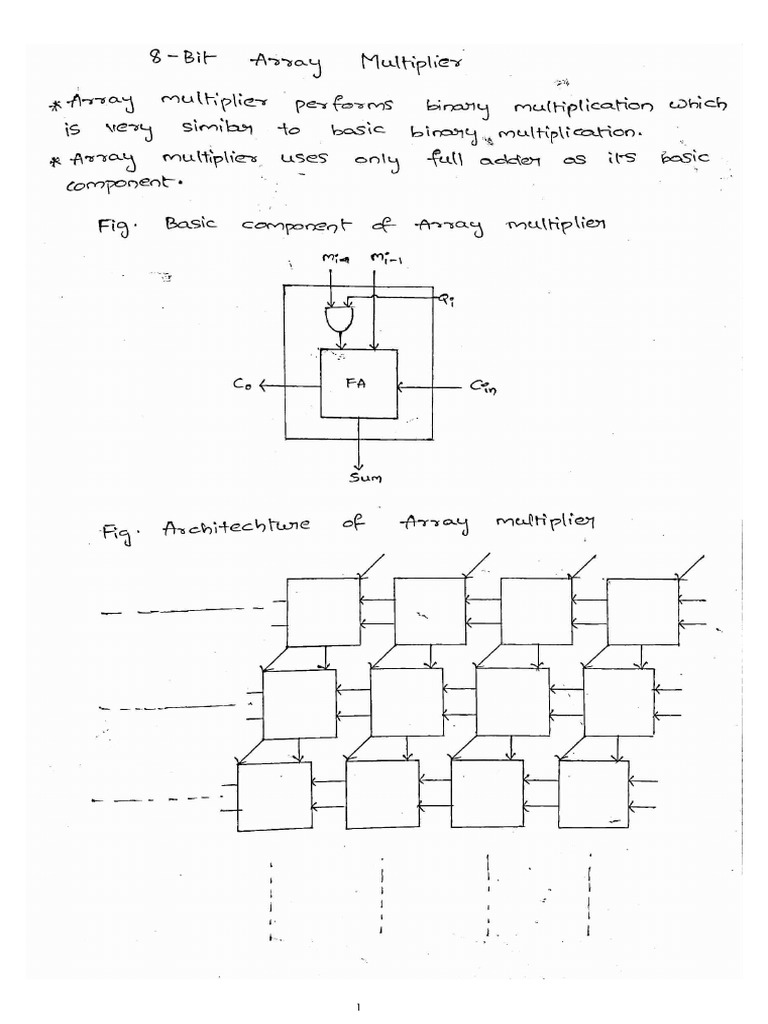 8-Bit Array Multiplier
* Array multiplier performs binary multiplication which
is very similar to basic binary multiplication.
* Array multiplier uses only full adder as its basic
component.
Fig. Basic component of Array multiplier
Mi-1
Qi
Co
FA
Cin
Sum
Fig. Architechture of Array multiplier
1